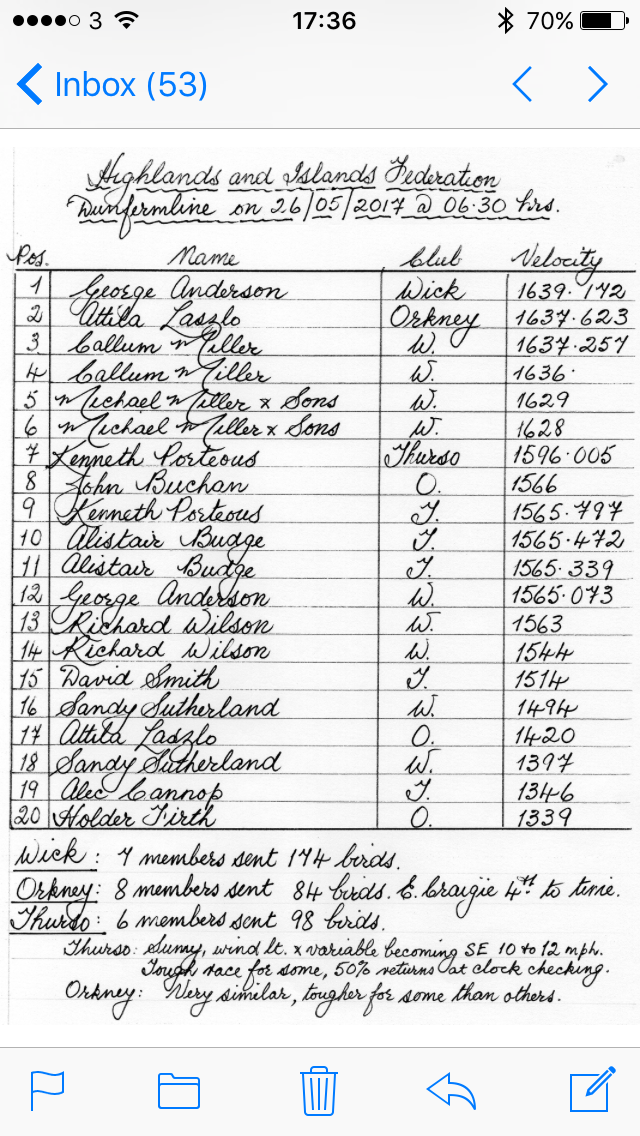 3 17:36 70%
Inbox (53)
Highlands and Islands Federation
Dunfermline on 26/05/2017 @ 06.30 hrs.
Pos. Name Club Velocity
1 George Anderson Wick 1639.172
2 Attila Laszlo Orkney 1637.623
3 Callum Miller W. 1637.257
4 Callum Miller W. 1636.
5 Michael Miller & Sons W. 1629
6 Michael Miller & Sons W. 1628
7 Kenneth Porteous Thurso 1596.005
8 John Buchan O. 1566
9 Kenneth Porteous T. 1565.797
10 Alistair Budge T. 1565.472
11 Alistair Budge T. 1565.339
12 George Anderson W. 1565.073
13 Richard Wilson W. 1563
14 Richard Wilson W. 1544
15 David Smith T. 1514
16 Sandy Sutherland W. 1494
17 Attila Laszlo O. 1420
18 Sandy Sutherland W. 1397
19 Alec Cannop T. 1346
20 Holder Firth O. 1339
Wick: 7 members sent 174 birds.
Orkney: 8 members sent 84 birds. E. Craigie 4th to time.
Thurso: 6 members sent 98 birds.
Thurso: Sunny, wind lt. & variable becoming SE 10 to 12 mph.
Tough race for some, 50% returns at clock checking.
Orkney: Very similar, tougher for some than others.